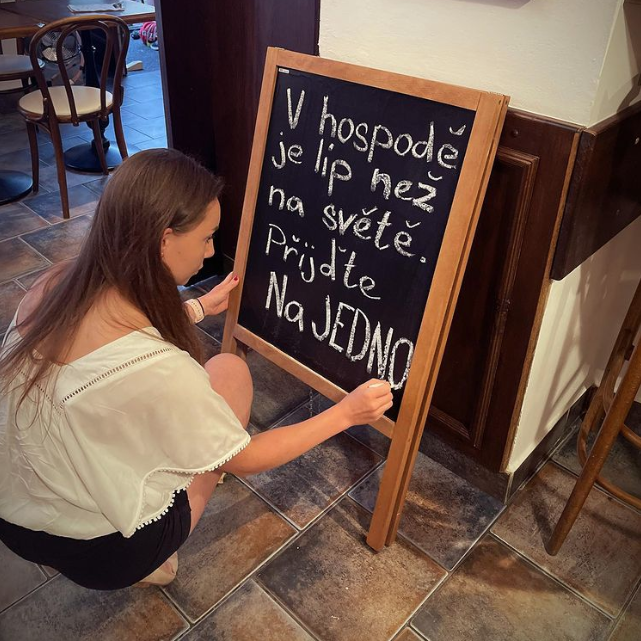 V hospodě
je lip než
na světě.
Přijďte
Na JEDNO